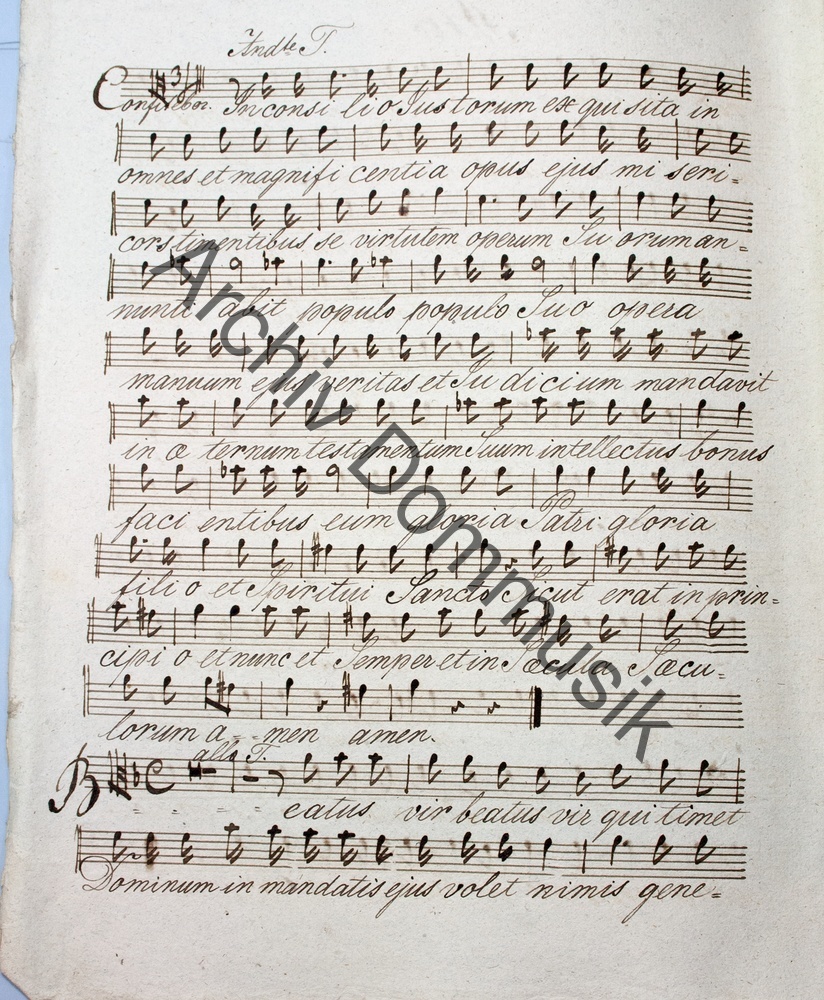 Andte T.
Confitebor. In consi lio Justorum ex qui sita in
omnes et magnifi centia opus ejus mi seri=
cors timentibus se virtutem operum Su orum an=
nunti abit populo populo Suo opera
manuum ejus veritas et Ju di cium mandavit
in æ ternum testamentum Suum intellectus bonus
faci entibus eum gloria Patri gloria
fili o et Spiritui Sancto Sicut erat in prin=
cipi o et nunc et Semper et in Sæcula Sæcu=
lorum a=- men amen.
allo T.
Beatus vir beatus vir qui timet
Dominum in mandatis ejus volet nimis gene=
Archiv Dommusik